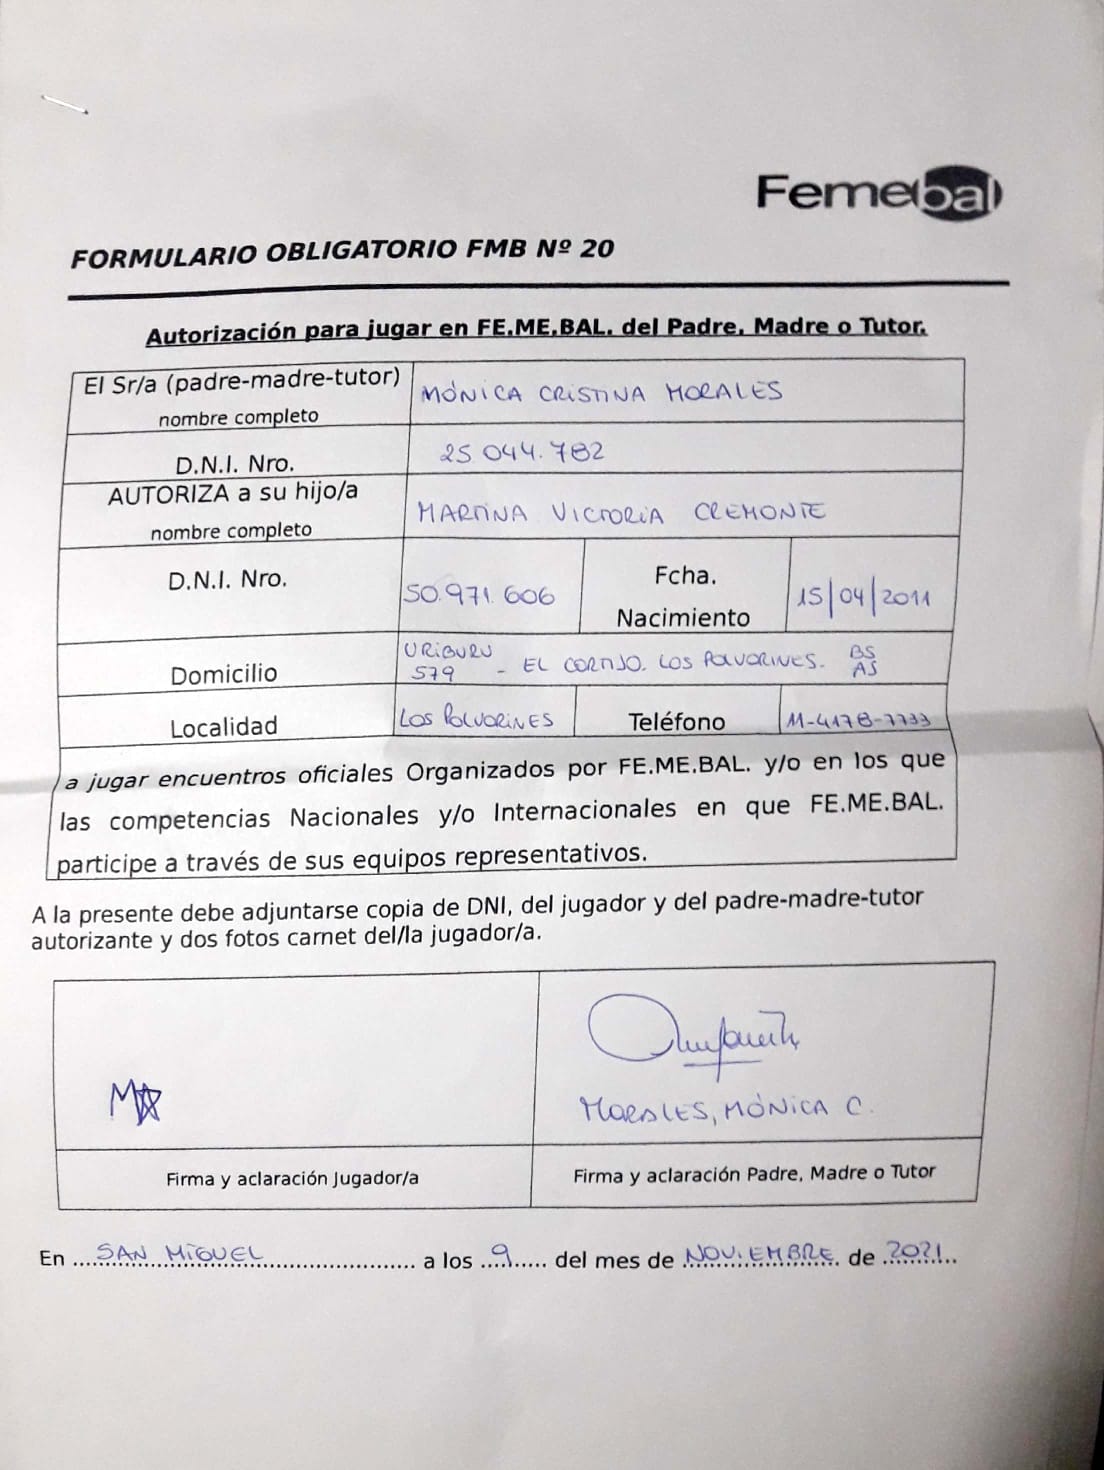 Femebal
FORMULARIO OBLIGATORIO FMB Nº 20
Autorización para jugar en FE.ME.BAL. del Padre, Madre o Tutor.
El Sr/a (padre-madre-tutor)
nombre completo
MÓNICA CRISTINA MORALES
D.N.I. Nro.
25.044.782
AUTORIZA a su hijo/a
nombre completo
MARTINA VICTORIA CREMONTE
D.N.I. Nro.
50.971.606
Fcha.
Nacimiento
15/04/2011
Domicilio
URIBURU
579 - EL CORTIJO. LOS POLVORINES. BS
AS
Localidad
LOS POLVORINES
Teléfono
11-4178-7733
a jugar encuentros oficiales Organizados por FE.ME.BAL. y/o en los que
las competencias Nacionales y/o Internacionales en que FE.ME.BAL.
participe a través de sus equipos representativos.
A la presente debe adjuntarse copia de DNI, del jugador y del padre-madre-tutor
autorizante y dos fotos carnet del/la jugador/a.
MORALES, MÓNICA C.
Firma y aclaración Jugador/a
Firma y aclaración Padre, Madre o Tutor
En ....SAN MIGUEL.... a los ....9..... del mes de NOVIEMBRE. de 2021..